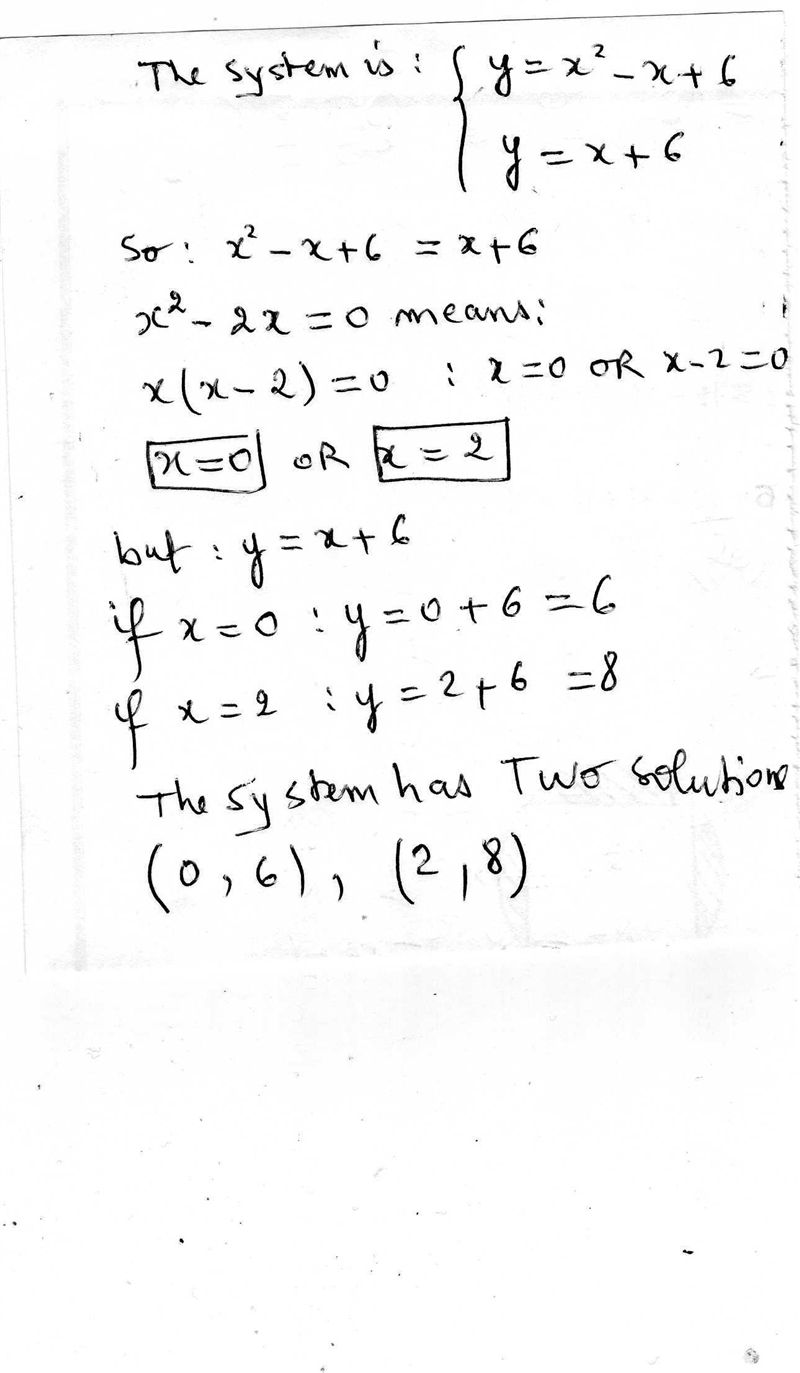 The system is : { y = x² - x + 6
y = x + 6
So : x² - x + 6 = x + 6
x² - 2x = 0 means :
x(x - 2) = 0 : x = 0 OR x - 2 = 0
x = 0 OR x = 2
but : y = x + 6
if x = 0 : y = 0 + 6 = 6
if x = 2 : y = 2 + 6 = 8
The system has Two solutions
(0, 6), (2, 8)